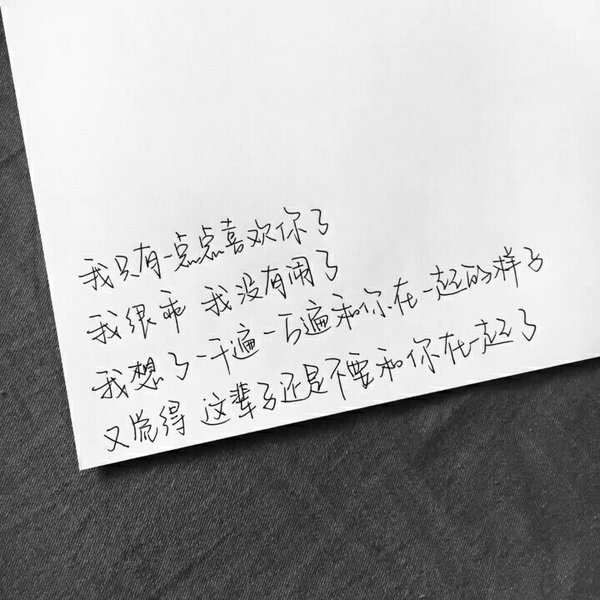 我只有一点点喜欢你了
我很乖 我没有闹了
我想了一千遍一万遍和你在一起的样子
又觉得 这辈子还是不要和你在一起了